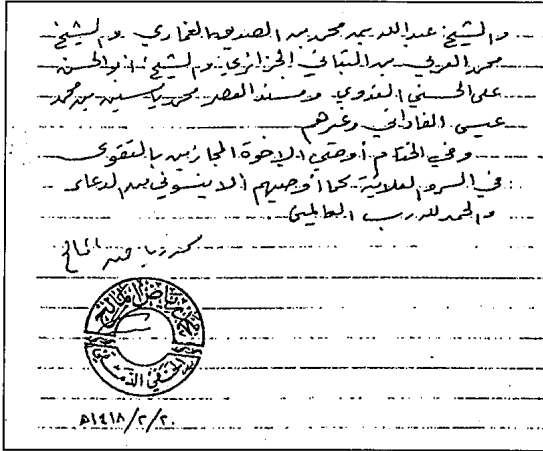 والشيخ: عبدالله بن محمد بن الصديق الغماري والشيخ
محمد العربي بن التباني الجزائري والشيخ: أبو الحسن
علي الحسني الندوي ومسند العصر محمد ياسين بن محمد
عيسى الفاداني وغيرهم
وفي الختام أوصي الإخوة المجازين بالتقوى
في السر والعلانية كما أوصيهم ألا ينسوني من الدعاء
والحمد لله رب العالمين.
محمد رياض المالح
محمد رياض المالح
الحنفي الدمشقي
١٤١٨/٢/٢٠هـ